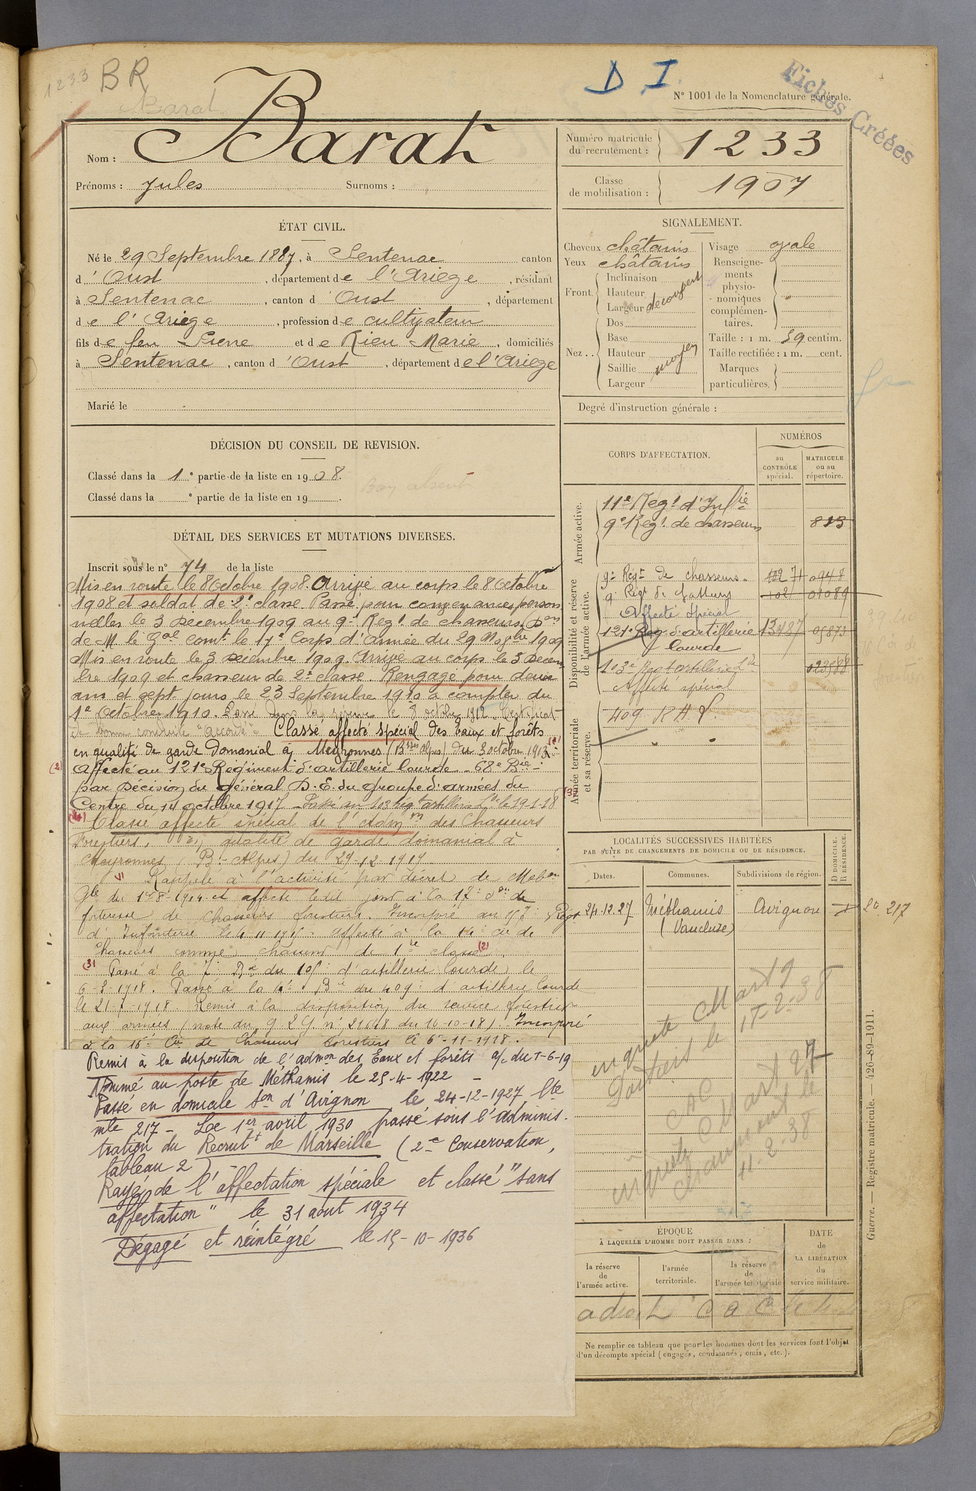 1233 BR
Barat
D I.
Nº 1001 de la Nomenclature générale.
Fiches Créées
Nom : Barat
Prénoms : Jules Surnoms :
Numéro matricule du recrutement : 1233
Classe de mobilisation : 1907
ÉTAT CIVIL.
Né le 29 Septembre 1887, à Sentenac canton
d'Oust, département de l'Ariège, résidant
à Sentenac, canton d'Oust, département
de l'Ariège, profession de cultivateur
fils de feu Pierre et de Rieu Marie, domiciliés
à Sentenac, canton d'Oust, département de l'Ariège
Marié le
SIGNALEMENT.
Cheveux châtains
Yeux châtains
Front. Inclinaison
Hauteur
Largeur découvert
Nez .. Dos
Base
Hauteur
Saillie moyen
Largeur
Visage ovale
Renseignements physionomiques complémentaires.
Taille : 1 m. 59 centim.
Taille rectifiée : 1 m. cent.
Marques particulières.
Degré d'instruction générale :
DÉCISION DU CONSEIL DE REVISION.
Classé dans la 1e partie de la liste en 1908.
Classé dans la e partie de la liste en 19 .
Bon absent
DÉTAIL DES SERVICES ET MUTATIONS DIVERSES.
Inscrit sous le nº 74 de la liste
Mis en route le 8 Octobre 1908. Arrivé au corps le 8 Octobre
1908 et soldat de 2e classe. Passé pour convenances person
nelles le 3 décembre 1909 au 9e Regt de chasseurs, Don
de M. le Gal comt le 17e Corps d'Armée du 29 Novbre 1909
Mis en route le 3 décembre 1909. Arrivé au corps le 3 Décem
bre 1909 et chasseur de 2e classe. Rengagé pour deux
ans et sept jours le 23 Septembre 1910 à compter du
1er Octobre 1910. Passé dans la réserve le 8 octobre 1912. Certificat
de bonne conduite "accordé". Classé affecté spécial des Eaux et forêts
en qualité de garde Domanial à Meyronnes (Bses Alpes) du 3 octobre 1913
Affecté au 121e Régiment d'artillerie lourde 68e Bie
par décision du général D.E. du groupe d'armées du
Centre du 14 octobre 1917. Passé au 103 Regt artillerie Lde le 19-1-18
Classé affecté spécial de l'Admon des Chasseurs
Forestiers, en qualité de garde domanial à
Meyronnes (Bses Alpes) du 29-12-1917
Rappelé à l'activité par décret de Mobon
Gle du 1-8-1914 et affecté
de Chasseurs forestiers. Incorporé au
d'Infanterie le
Chasseurs comme chasseur de 1re classe (2)
(3) Passé à la 7e Bie du 105e d'artillerie lourde le
6-2-1918. Passé à la Bie du 409e d'artillerie lourde
le 21-7-1918 Remis à la disposition du service forestier
aux armées (note du G.Q.G. nº du 10-10-18). Incorporé
à la 16e Cie de Chasseurs Forestiers le 6-11-1918.
Remis à la disposition de l'admon des Eaux et forêts a/c du 1-6-19
Nommé au poste de Méthamis le 25-4-1922
Passé en domicile son d'Avignon le 24-12-1927 lte
mle 217 - Le 1er avril 1930 passé sous l'adminis-
tration du Recrutt de Marseille (2me Conservation,
tableau 2
Rayé de l'affectation spéciale et classé "sans
affectation" le 31 août 1934
Dégagé et réintégré le 15-10-1936
CORPS D'AFFECTATION.
NUMÉROS
au CONTRÔLE spécial.
MATRICULE ou au répertoire.
Armée active.
11e Regt d'Infie
9e Regt de chasseurs 813
Disponibilité et réserve de l'armée active.
9e Regt de chasseurs
9e Regt de chasseurs 01089
Affecté spécial
121e Reg d'artillerie lourde 13487 05873
103e Regt d'artillerie Lde
Affecté spécial
Armée territoriale et sa réserve.
409 RAL
LOCALITÉS SUCCESSIVES HABITÉES
PAR SUITE DE CHANGEMENTS DE DOMICILE OU DE RÉSIDENCE.
Dates. Communes. Subdivisions de région. D DOMICILE. R RÉSIDENCE.
24-12-27 Méthamis (Vaucluse) Avignon D
217
enquête Mart 9
le 17-2-38
CAC
enquête Mart 27
le
11-2-38
ÉPOQUE
À LAQUELLE L'HOMME DOIT PASSER DANS :
la réserve de l'armée active.
l'armée territoriale.
la réserve de l'armée territoriale
DATE de LA LIBÉRATION du service militaire.
Ne remplir ce tableau que pour les hommes dont les services font l'objet
d'un décompte spécial (engagés, condamnés, omis, etc.).
Guerre. — Registre matricule. — 426-89-1911.